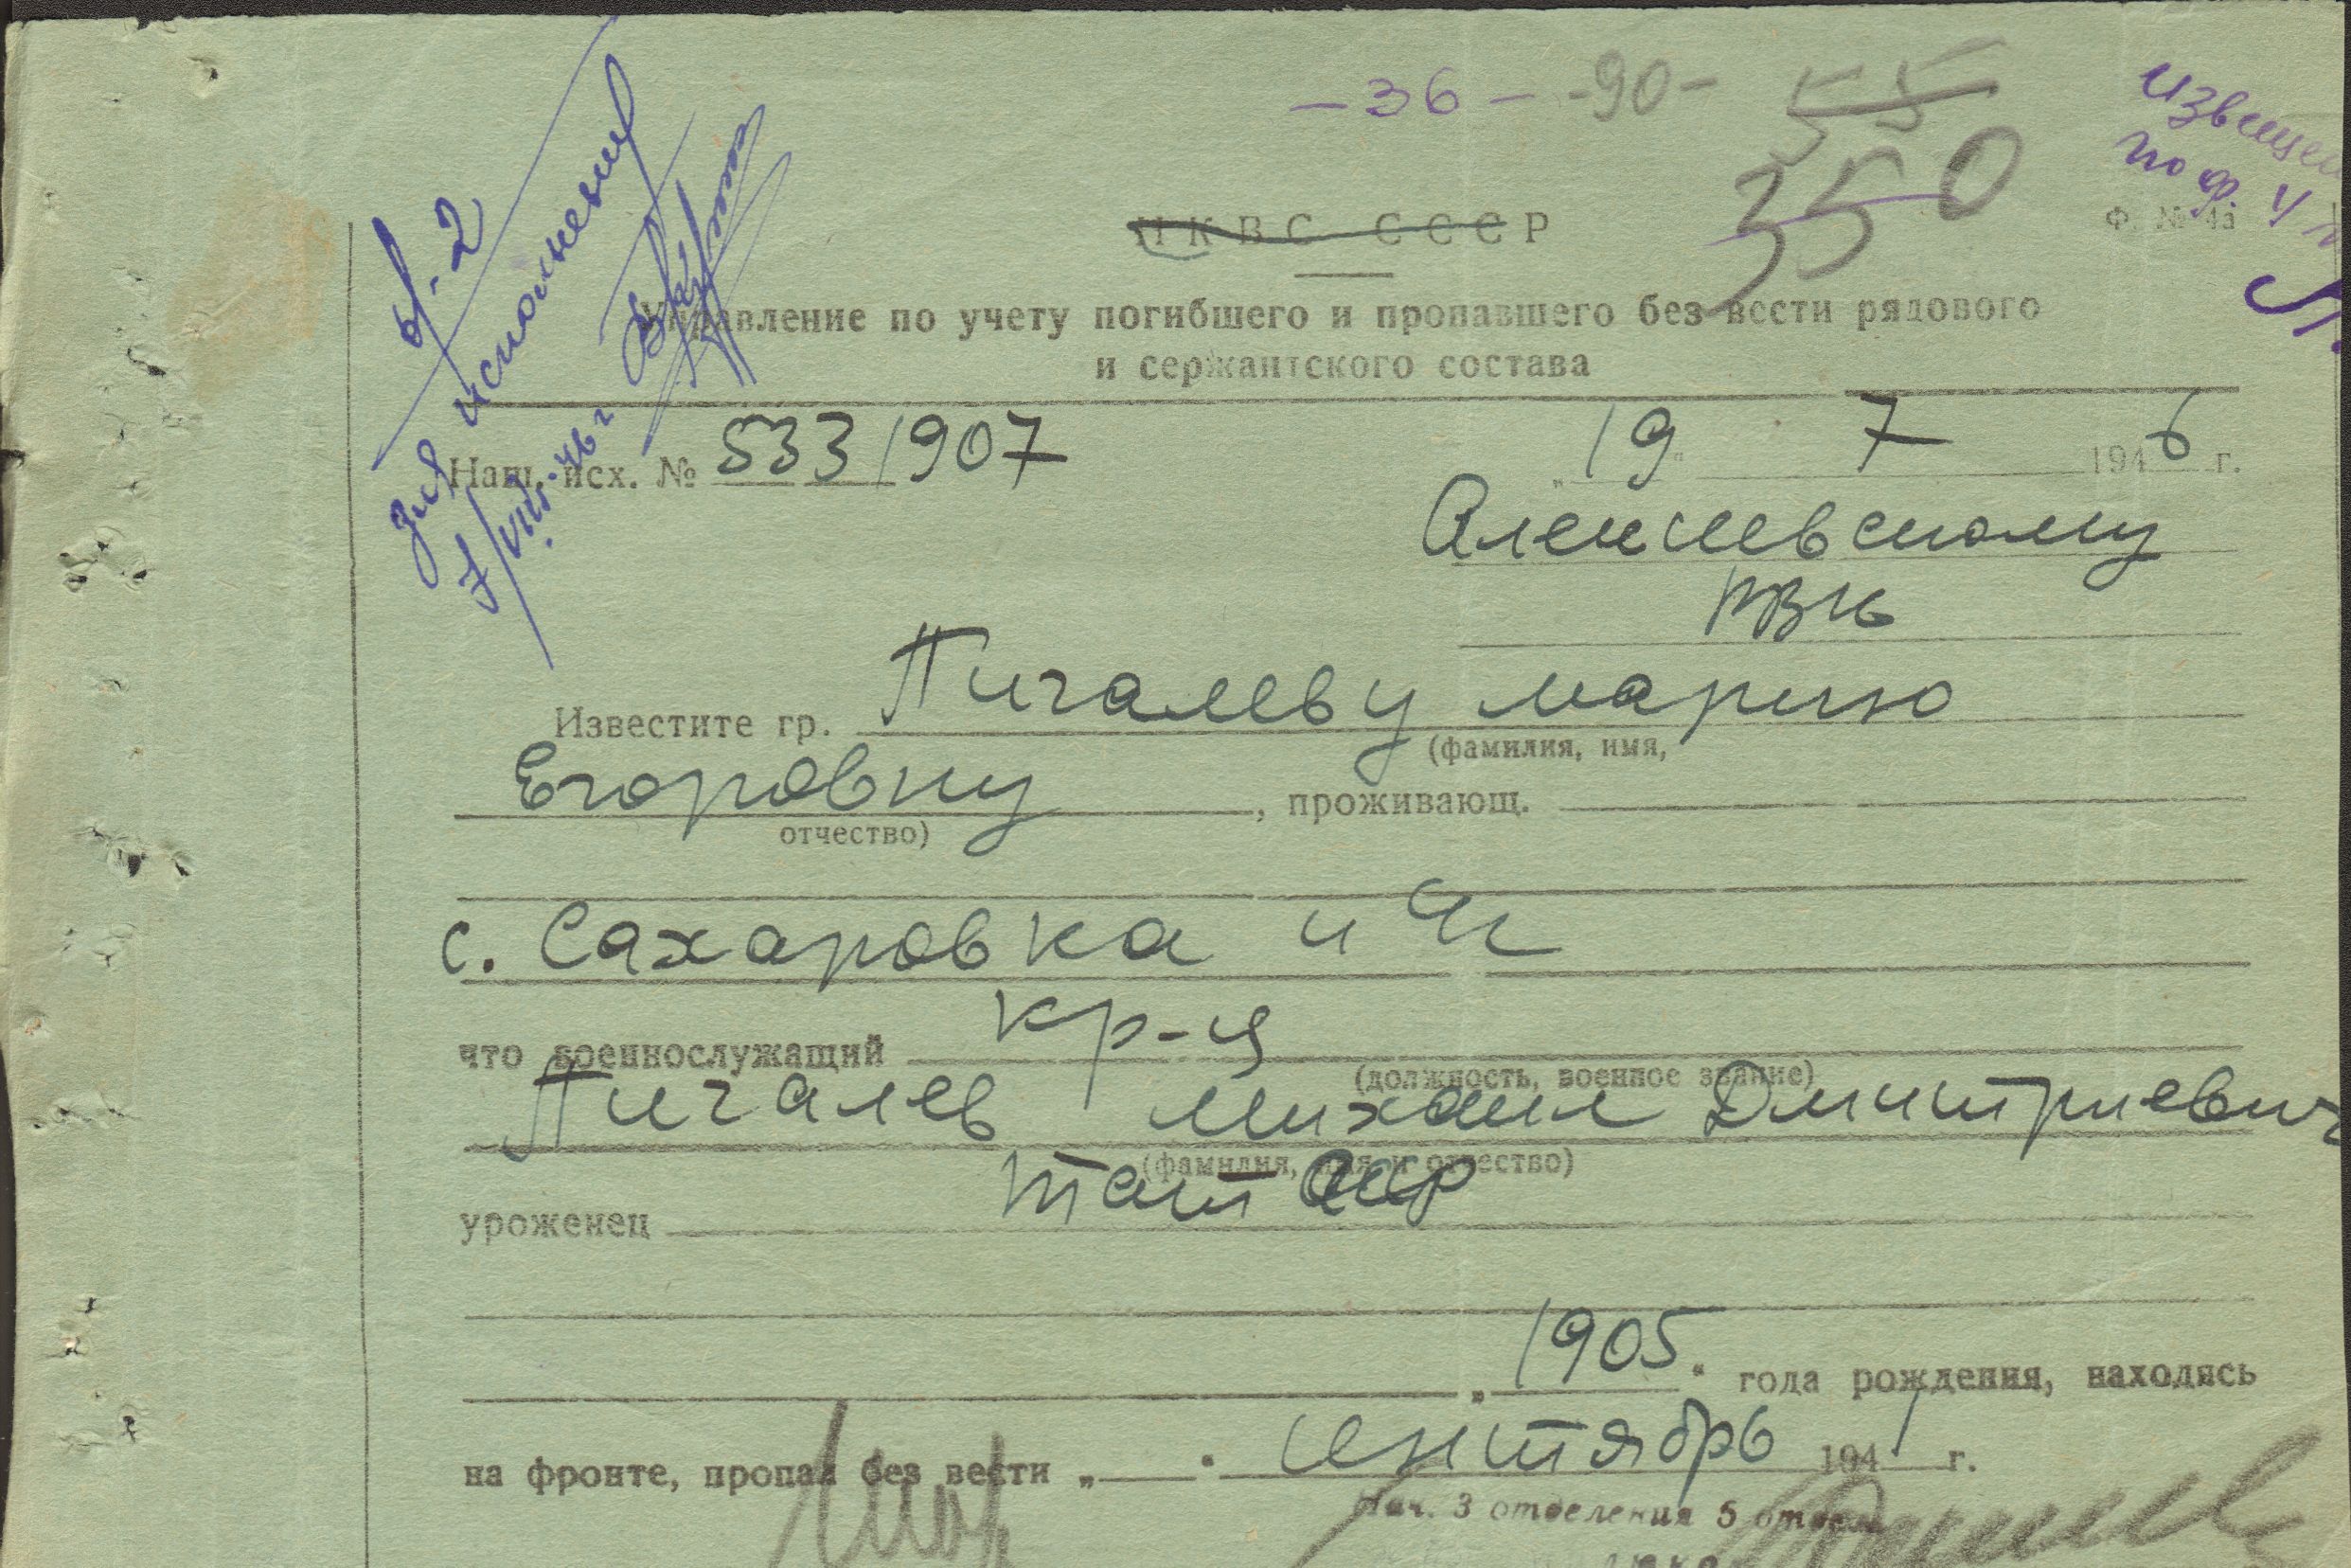 -36- -90- 55
350
извещен
по ф. 4
Ф. № 4а
НКВС СССР
Управление по учету погибшего и пропавшего без вести рядового
и сержантского состава
в-2
для исполнения
7/VIII-46 г
Наш. исх. № 533/907
„19“ 7 1946 г.
Алексеевскому
РВК
Известите гр. Пигалеву Марию
(фамилия, имя,
Егоровну, проживающ.
отчество)
с. Сахаровка
что военнослужащий кр-ц
(должность, военное звание)
Пигалев Михаил Дмитриевич
(фамилия, имя и отчество)
уроженец Тат АССР
„1905“ года рождения, находясь
на фронте, пропал без вести „ “ сентябрь 1941 г.
Нач. 3 отделения 5 отдела